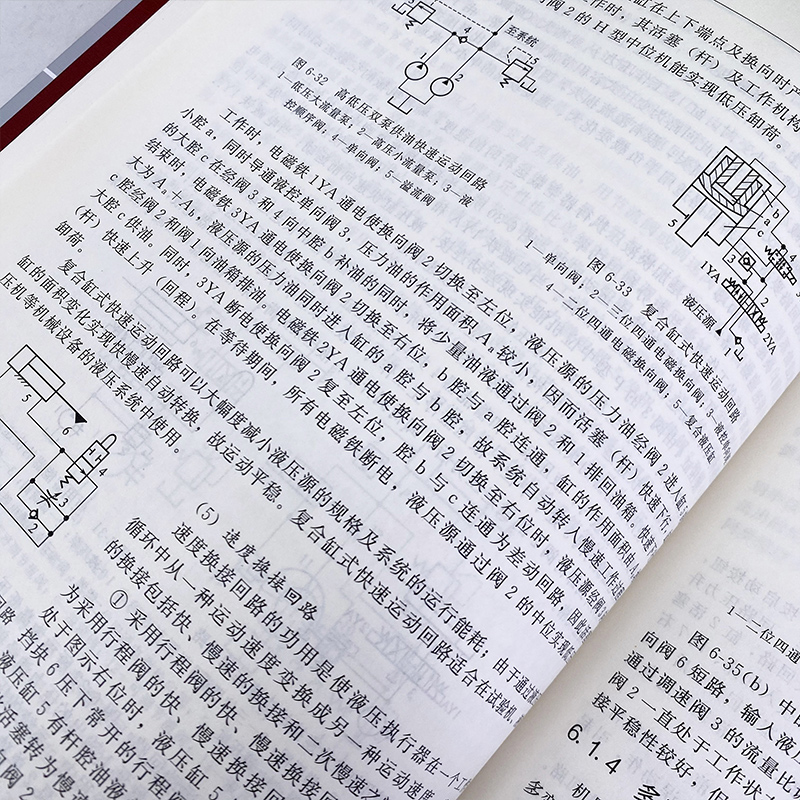 缸在上下端点及换向时产
工作时，其活塞（杆）及工作机构
阀2的H型中位机能实现低压卸荷。
至系统
图 6-32 高低压双泵供油快速运动回路
1—低压大流量泵；2—高压小流量泵；3—液
控顺序阀；4—单向阀；5—溢流阀
图 6-33 复合缸式快速运动回路
1—单向阀；2—三位四通电磁换向阀；3—液控单向
4—二位四通电磁换向阀；5—复合液压缸
1YA
2YA
液压源
工作时，电磁铁1YA通电使换向阀2切换至左位，液压源的压力油经阀2进入缸
小腔a，同时导通液控单向阀3，压力油的作用面积Aa较小，因而活塞（杆）快速下行，
的大腔c在经阀3和4向中腔b补油的同时，将少量油液通过阀2和1排回油箱。
结束时，电磁铁3YA通电使换向阀2切换至右位，b腔与a腔连通，缸的作用面积由
大为Aa+Ab，液压源的压力油同时进入缸的a腔与b腔，故系统自动转入慢速工作
c腔经阀2和阀1向油箱排油。电磁铁2YA通电使换向阀2切换至右位时，液压源经阀
大腔c供油。同时，3YA断电使换向阀2复至左位，腔b与c连通为差动回路，因此活
（杆）快速上升（回程）。在等待期间，所有电磁铁断电，液压源通过阀2的中位实现
卸荷。
复合缸式快速运动回路可以大幅度减小液压源的规格及系统的运行能耗；由于通过
缸的面积变化实现快慢速自动转换，故运动平稳。复合缸式快速运动回路适合在试验机、
压机等机械设备的液压系统中使用。
（5）速度换接回路
速度换接回路的功用是使液压执行器在一个工
循环中从一种运动速度变换成另一种运动速度
的换接包括快、慢速的换接和二次慢速之
① 采用行程阀的快、慢速换接回
为采用行程阀的快、慢速换接回
处于图示右位时，液压缸5
挡块6压下常开的行程阀
液压缸5有杆腔油液
活塞转为慢速
阀2
1—二位四通
图 6-35(b) 中
向阀6短路，输入液
通过调速阀3的流量比
阀2一直处于工作状
接平稳性较好，但
6.1.4 多